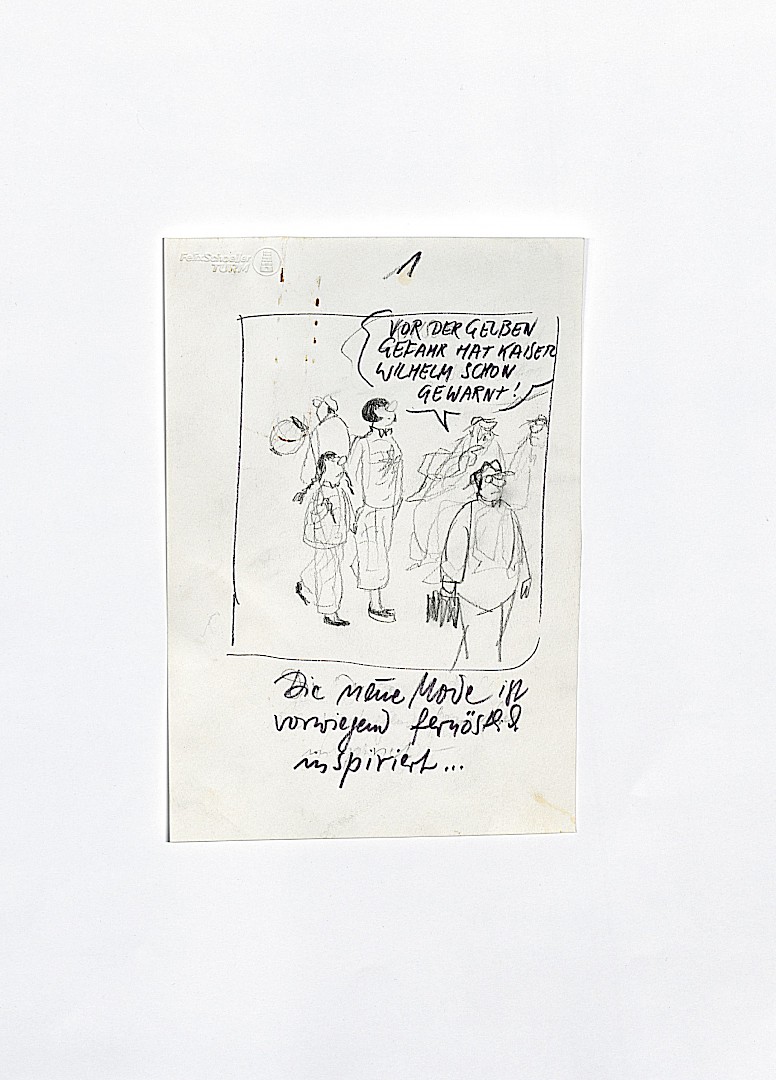 FelixSchoeller
TURM
1
VOR DER GELBEN
GEFAHR HAT KAISER
WILHELM SCHON
GEWARNT!
Die neue Mode ist
vorwiegend fernöstl.
inspiriert...